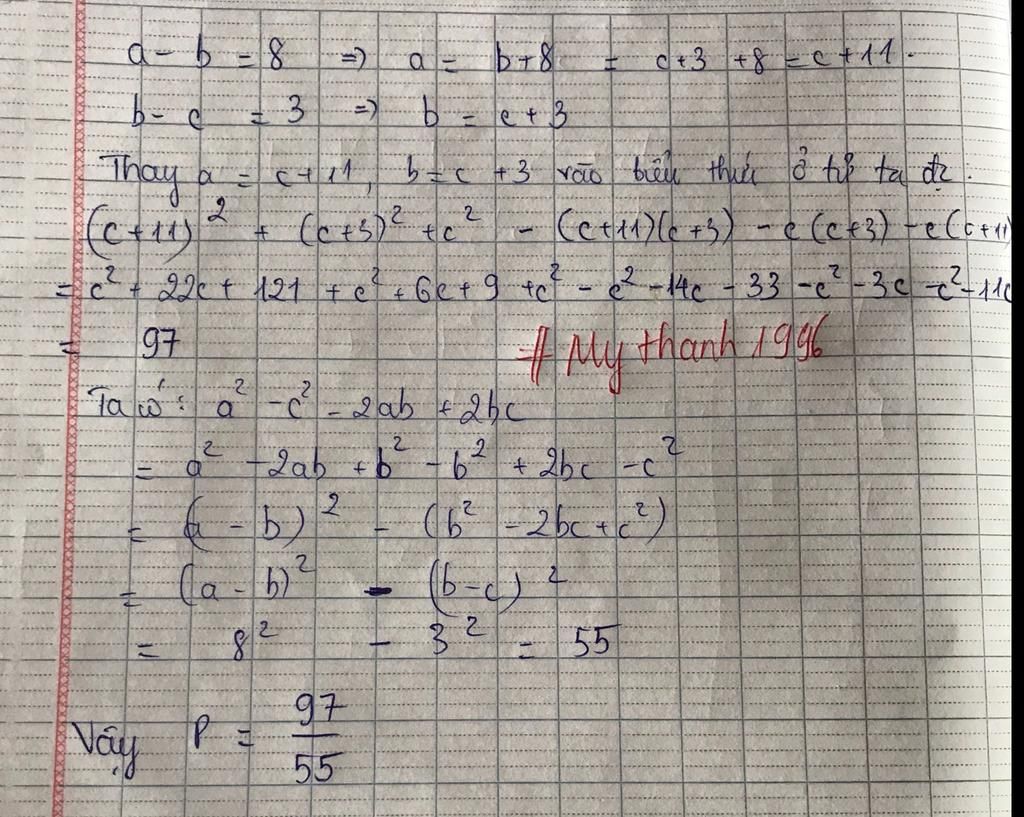 a - b = 8 => a = b+8 = c+3 +8 = c+11.
b - c = 3 => b = c+3
Thay a = c+11, b = c+3 vào biểu thức ở tử ta đc:
(c+11)² + (c+3)² + c² - (c+11)(c+3) - c(c+3) - c(c+11)
= c² + 22c + 121 + c² + 6c + 9 + c² - c² - 14c - 33 - c² - 3c - c² - 11c
= 97
# My thanh 1996
Ta có: a² - c² - 2ab + 2bc
= a² - 2ab + b² - b² + 2bc - c²
= (a - b)² - (b² - 2bc + c²)
= (a - b)² - (b - c)²
= 8² - 3² = 55
Vậy P = 97/55